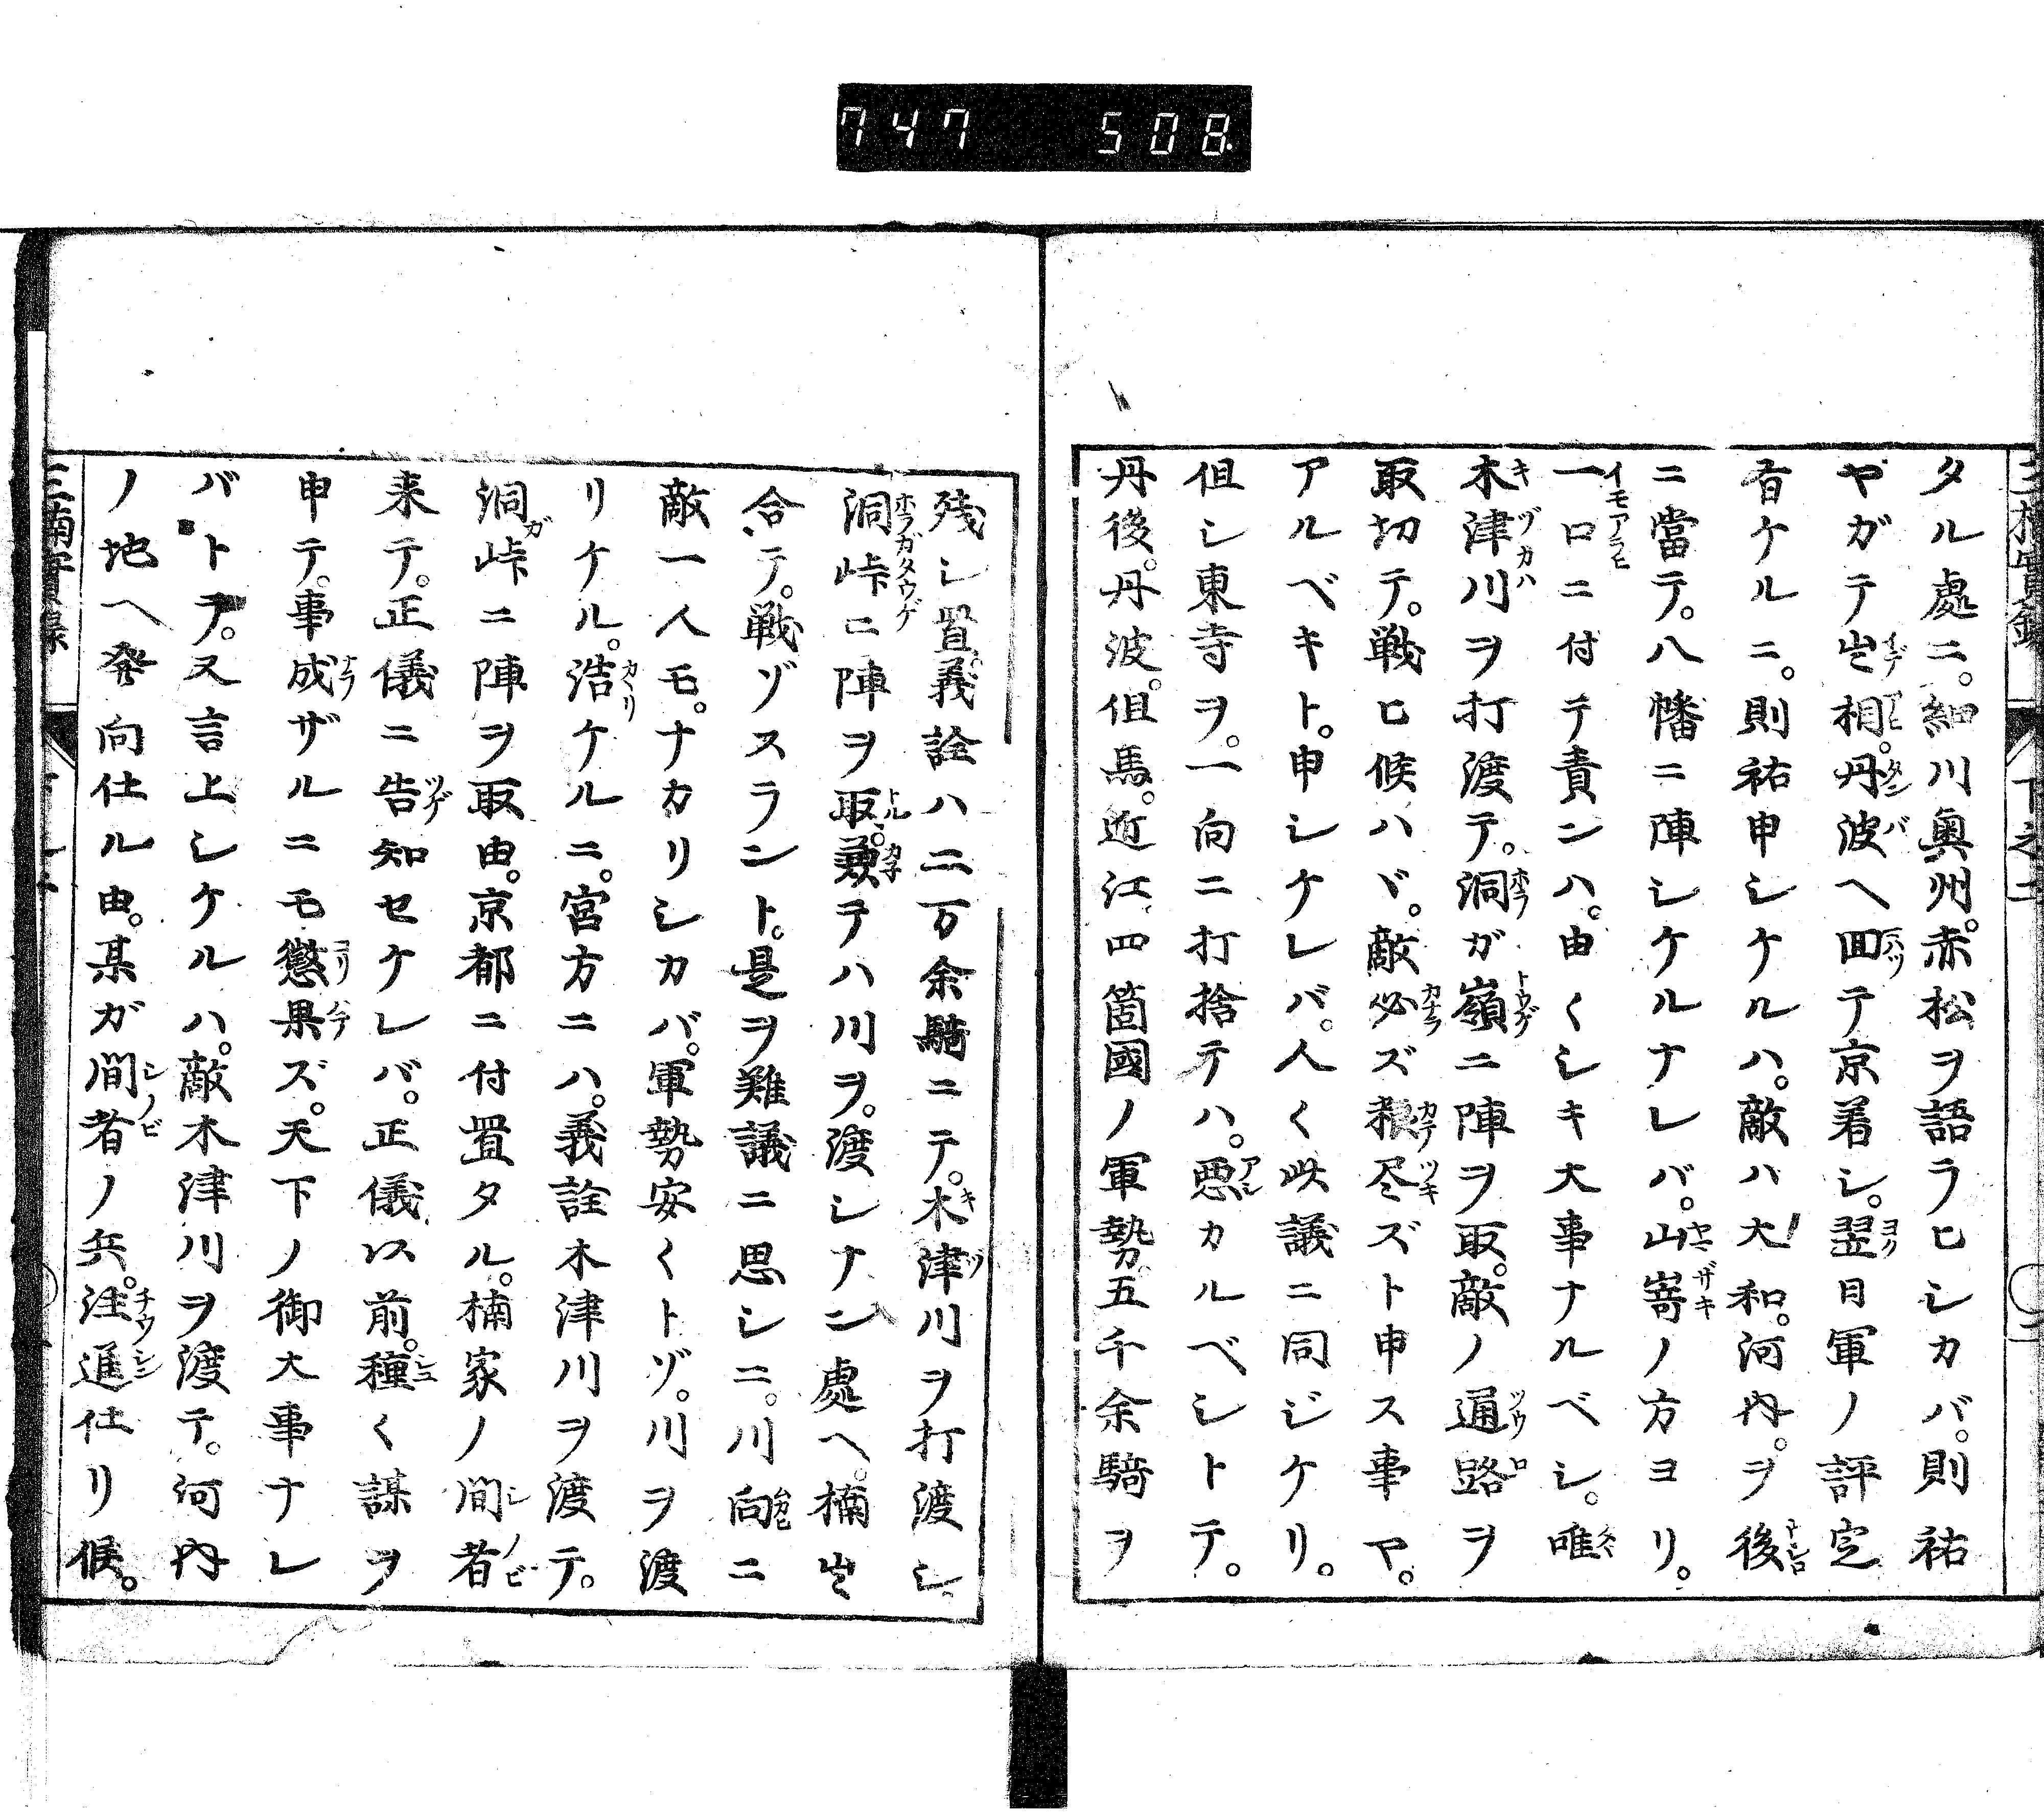 747 508
タル處ニ。細川奥州。赤松ヲ語ラヒシカバ。則祐
ヤガテ出相。丹波ヘ回テ京着シ。翌日軍ノ評定
有ケルニ。則祐申シケルハ。敵ハ大和。河内。ヲ後
ニ當テ。八幡ニ陣シケルナレバ。山嵜ノ方ヨリ。
一口ニ付テ責ンハ。由〱シキ大事ナルベシ。唯
木津川ヲ打渡テ。洞ガ嶺ニ陣ヲ取。敵ノ通路ヲ
取切テ。戦ヒ候ハヾ。敵必ズ粮尽ズト申ス事ヤ。
アルベキト。申シケレバ。人〱此議ニ同ジケリ。
但シ東寺ヲ。一向ニ打捨テハ。悪カルベシトテ。
丹後。丹波。但馬。近江。四箇國ノ軍勢。五千余騎ヲ
残シ置。義詮ハ二万余騎ニテ。木津川ヲ打渡シ。
洞峠ニ陣ヲ取。兼テハ川ヲ。渡シナン處ヘ。楠出
合テ。戦ゾスラント。是ヲ難議ニ思シニ。川向ニ
敵一人モ。ナカリシカバ。軍勢安〱トゾ。川ヲ渡
リケル。浩ケルニ。宮方ニハ。義詮木津川ヲ渡テ。
洞峠ニ陣ヲ取由。京都ニ付置タル。楠家ノ間者
来テ。正儀ニ告知セケレバ。正儀以前。種〱謀ヲ
申テ。事成ザルニモ懲果ズ。天下ノ御大事ナレ
バトテ。又言上シケルハ。敵木津川ヲ渡テ。河内
ノ地ヘ発向仕ル由。某ガ間者ノ兵。注進仕リ候。